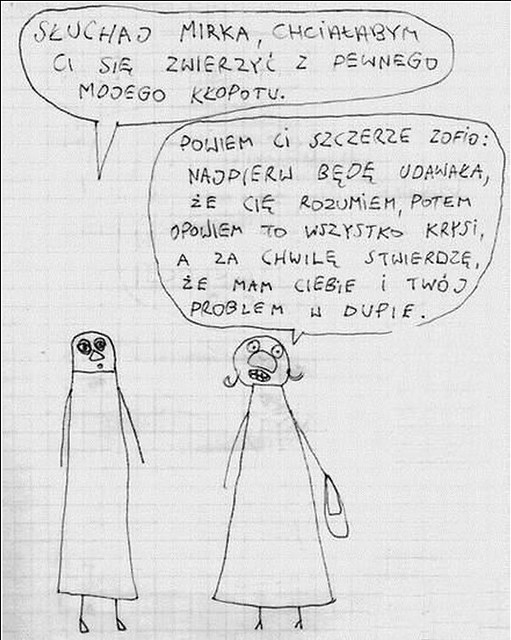 SŁUCHAJ MIRKA, CHCIAŁABYM
CI SIĘ ZWIERZYĆ Z PEWNEGO
MOJEGO KŁOPOTU.
POWIEM CI SZCZERZE ZOFIO:
NAJPIERW BĘDĘ UDAWAŁA,
ŻE CIĘ ROZUMIEM, POTEM
OPOWIEM TO WSZYSTKO KRYSI,
A ZA CHWILĘ STWIERDZĘ,
ŻE MAM CIEBIE I TWÓJ
PROBLEM W DUPIE.